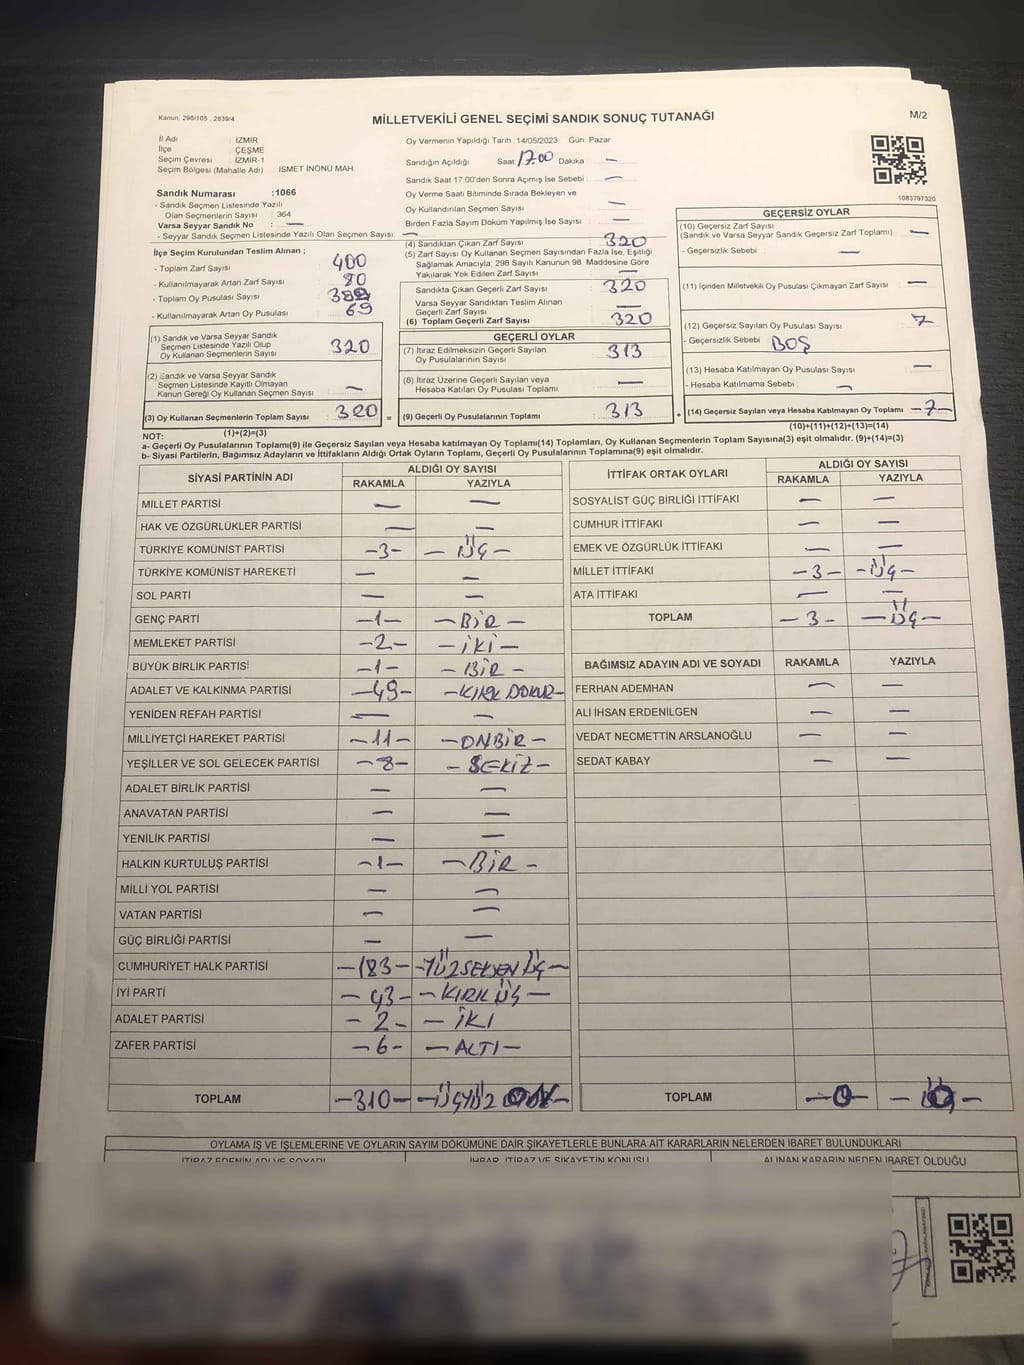 Kanun: 298/105 , 2839/4
MİLLETVEKİLİ GENEL SEÇİMİ SANDIK SONUÇ TUTANAĞI
M/2
İl Adı : İZMİR
İlçe : ÇEŞME
Seçim Çevresi : İZMİR-1
Seçim Bölgesi (Mahalle Adı) : İSMET İNÖNÜ MAH.
Sandık Numarası :1066
- Sandık Seçmen Listesinde Yazılı
Olan Seçmenlerin Sayısı : 364
Varsa Seyyar Sandık No : —
- Seyyar Sandık Seçmen Listesinde Yazılı Olan Seçmen Sayısı: —
Oy Vermenin Yapıldığı Tarih :14/05/2023 Gün: Pazar
Sandığın Açıldığı Saat 17.00 Dakika —
Sandık Saat 17:00'den Sonra Açımış İse Sebebi : —
Oy Verme Saati Bitiminde Sırada Bekleyen ve
Oy Kullandırılan Seçmen Sayısı —
Birden Fazla Sayım Döküm Yapılmış İse Sayısı : —
1083797320
İlçe Seçim Kurulundan Teslim Alınan ;
- Toplam Zarf Sayısı 400
- Kullanılmayarak Artan Zarf Sayısı : 80
- Toplam Oy Pusulası Sayısı
- Kullanılmayarak Artan Oy Pusulası : 69
(1) Sandık ve Varsa Seyyar Sandık
Seçmen Listesinde Yazılı Olup
Oy Kullanan Seçmenlerin Sayısı 320
(2) Sandık ve Varsa Seyyar Sandık
Seçmen Listesinde Kayıtlı Olmayan
Kanun Gereği Oy Kullanan Seçmen Sayısı —
(3) Oy Kullanan Seçmenlerin Toplam Sayısı 320 =
(1)+(2)=(3)
(4) Sandıktan Çıkan Zarf Sayısı 320
(5) Zarf Sayısı Oy Kullanan Seçmen Sayısından Fazla İse, Eşitliği
Sağlamak Amacıyla; 298 Sayılı Kanunun 98. Maddesine Göre
Yakılarak Yok Edilen Zarf Sayısı —
Sandıkta Çıkan Geçerli Zarf Sayısı 320
Varsa Seyyar Sandıktan Teslim Alınan
Geçerli Zarf Sayısı —
(6) Toplam Geçerli Zarf Sayısı 320
GEÇERLİ OYLAR
(7) İtiraz Edilmeksizin Geçerli Sayılan
Oy Pusulalarının Sayısı 313
(8) İtiraz Üzerine Geçerli Sayılan veya
Hesaba Katılan Oy Pusulası Toplamı —
(9) Geçerli Oy Pusulalarının Toplamı 313 +
GEÇERSİZ OYLAR
(10) Geçersiz Zarf Sayısı
(Sandık ve Varsa Seyyar Sandık Geçersiz Zarf Toplamı) —
- Geçersizlik Sebebi : —
(11) İçinden Milletvekili Oy Pusulası Çıkmayan Zarf Sayısı —
(12) Geçersiz Sayılan Oy Pusulası Sayısı 7
- Geçersizlik Sebebi : BOŞ
(13) Hesaba Katılmayan Oy Pusulası Sayısı —
- Hesaba Katılmama Sebebi : —
(14) Geçersiz Sayılan veya Hesaba Katılmayan Oy Toplamı -7-
(10)+(11)+(12)+(13)=(14)
NOT:
a- Geçerli Oy Pusulalarının Toplamı(9) ile Geçersiz Sayılan veya Hesaba katılmayan Oy Toplamı(14) Toplamları, Oy Kullanan Seçmenlerin Toplam Sayısına(3) eşit olmalıdır. (9)+(14)=(3)
b- Siyasi Partilerin, Bağımsız Adayların ve İttifakların Aldığı Ortak Oyların Toplamı, Geçerli Oy Pusulalarının Toplamına(9) eşit olmalıdır.
SİYASİ PARTİNİN ADI ALDIĞI OY SAYISI
RAKAMLA YAZIYLA
MİLLET PARTİSİ — —
HAK VE ÖZGÜRLÜKLER PARTİSİ — —
TÜRKİYE KOMÜNİST PARTİSİ -3- - ÜÇ -
TÜRKİYE KOMÜNİST HAREKETİ — —
SOL PARTİ — —
GENÇ PARTİ -1- - BİR -
MEMLEKET PARTİSİ -2- - İKİ -
BÜYÜK BİRLİK PARTİSİ -1- - BİR -
ADALET VE KALKINMA PARTİSİ -49- - KIRK DOKUZ -
YENİDEN REFAH PARTİSİ — —
MİLLİYETÇİ HAREKET PARTİSİ -11- - ONBİR -
YEŞİLLER VE SOL GELECEK PARTİSİ -8- - SEKİZ -
ADALET BİRLİK PARTİSİ — —
ANAVATAN PARTİSİ — —
YENİLİK PARTİSİ — —
HALKIN KURTULUŞ PARTİSİ -1- - BİR -
MİLLİ YOL PARTİSİ — —
VATAN PARTİSİ — —
GÜÇ BİRLİĞİ PARTİSİ — —
CUMHURİYET HALK PARTİSİ -183- - YÜZSEKSEN ÜÇ -
İYİ PARTİ - 43 - - KIRK ÜÇ -
ADALET PARTİSİ - 2 - - İKİ
ZAFER PARTİSİ - 6 - - ALTI -
TOPLAM -310- - ÜÇYÜZ ON -
İTTİFAK ORTAK OYLARI ALDIĞI OY SAYISI
RAKAMLA YAZIYLA
SOSYALİST GÜÇ BİRLİĞİ İTTİFAKI — —
CUMHUR İTTİFAKI — —
EMEK VE ÖZGÜRLÜK İTTİFAKI — —
MİLLET İTTİFAKI - 3 - - ÜÇ -
ATA İTTİFAKI — —
TOPLAM - 3 - - ÜÇ -
BAĞIMSIZ ADAYIN ADI VE SOYADI RAKAMLA YAZIYLA
FERHAN ADEMHAN — —
ALİ İHSAN ERDENİLGEN — —
VEDAT NECMETTİN ARSLANOĞLU — —
SEDAT KABAY — —
TOPLAM - 0 -
OYLAMA İŞ VE İŞLEMLERİNE VE OYLARIN SAYIM DÖKÜMÜNE DAİR ŞİKAYETLERLE BUNLARA AİT KARARLARIN NELERDEN İBARET BULUNDUKLARI
İTİRAZ EDENİN ADI VE SOYADI İHBAR, İTİRAZ VE ŞİKAYETİN KONUSU ALINAN KARARIN NEDEN İBARET OLDUĞU